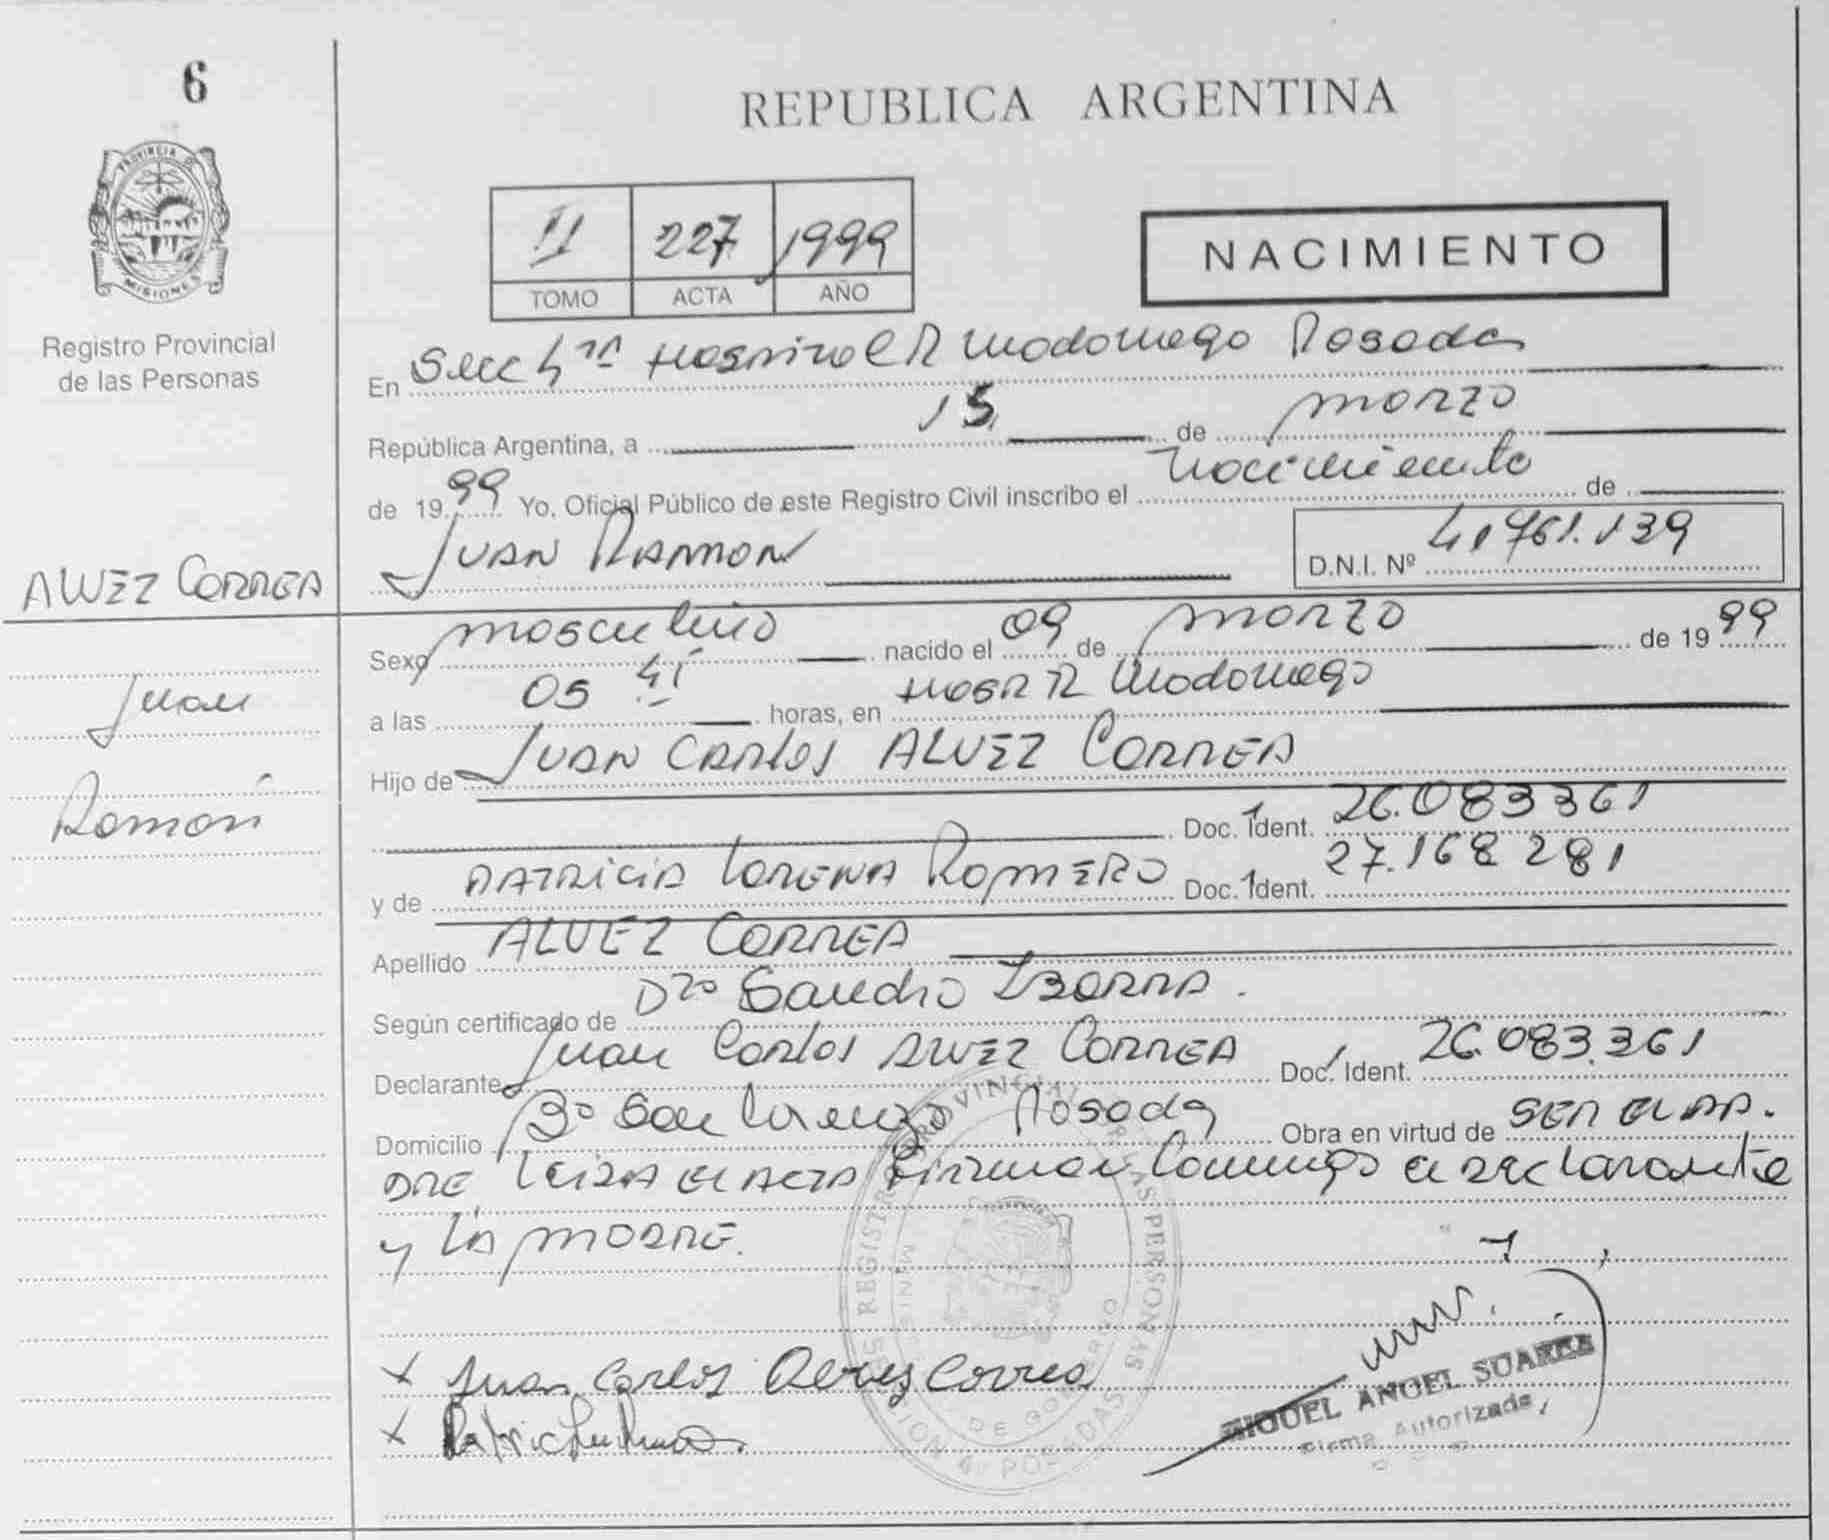 6
REPUBLICA ARGENTINA
PROVINCIA D
MISIONES
Registro Provincial
de las Personas
II 227 1999
TOMO ACTA AÑO
NACIMIENTO
En Secc 4ta Hospital R Madariaga Posadas
República Argentina, a 15 de marzo
de 1999 Yo, Oficial Público de este Registro Civil inscribo el nacimiento de
ALVEZ CORREA JUAN RAMON D.N.I. Nº 41.761.139
Juan
Ramon
Sexo masculino nacido el 09 de marzo de 1999
a las 05 41 horas, en Hosp R Madariaga
Hijo de JUAN CARLOS ALVEZ CORREA
Doc. Ident. 26.083361
y de PATRICIA LORENA ROMERO Doc. Ident. 27.168281
Apellido ALVEZ CORREA
Según certificado de Dro Sandro IBARRA.
Declarante Juan Carlos ALVEZ CORREA Doc. Ident. 26.083.361
Domicilio Bº San Lorenzo Posadas Obra en virtud de SER EL PA.
DRE Leida el ACTA Firman Conmigo el declarante
y LA MADRE.
REGISTRO PROVINCIAL DE LAS PERSONAS
MINIS DE GOBIERNO
POSADAS
x Juan Carlos Alvez Correa
x
MIGUEL ANGEL SUAREZ
Firma Autorizada